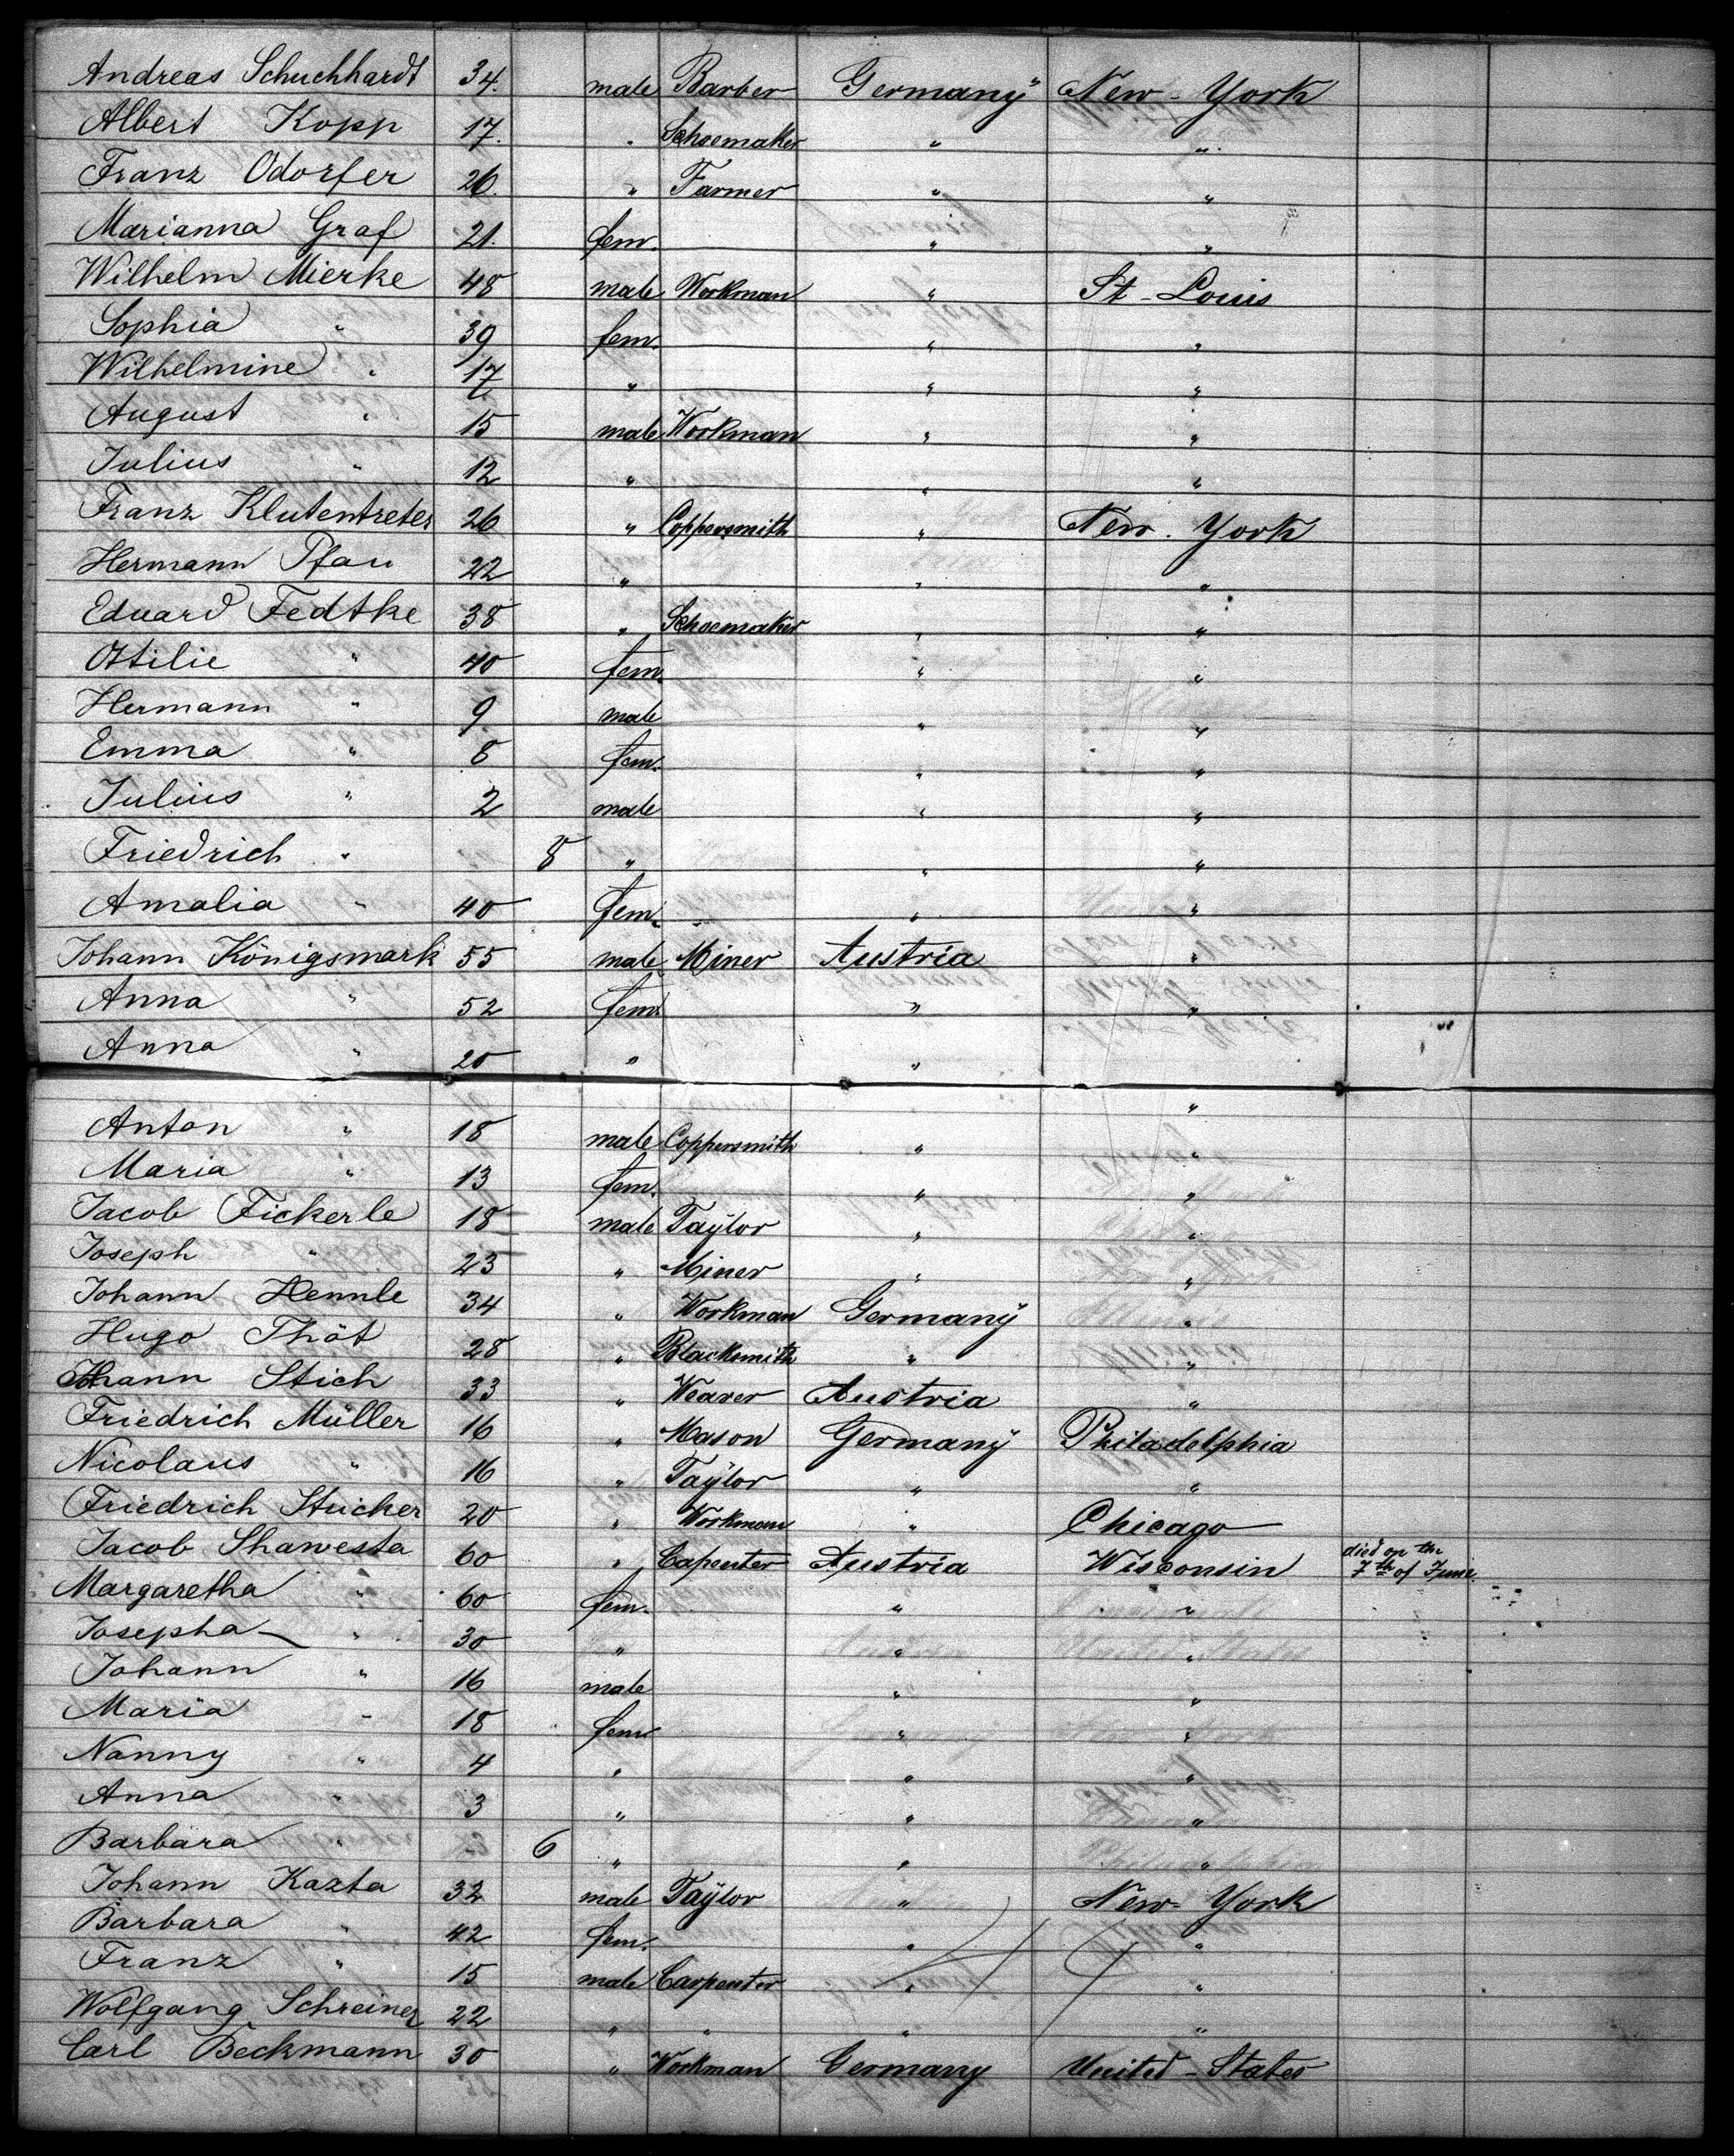 Andreas Schuchhardt 34. male Barber Germany New-York
Albert Kopp 17. " Schoemaker " "
Franz Odorfer 26. " Farmer " "
Marianna Graf 21. fem. " "
Wilhelm Mierke 48 male Workman " St-Louis
Sophia " 39 fem. " "
Wilhelmine " 17 " " "
August " 15 male Workman " "
Julius " 12 " " "
Franz Klutentreter 26 " Coppersmith " New-York
Hermann Pfau 22 " " "
Eduard Fedtke 38 " Schoemaker " "
Ottilie " 40 fem. " "
Hermann " 9 male " "
Emma " 8 fem. " "
Julius " 2 male " "
Friedrich " 8 " " "
Amalia " 40 fem. " "
Johann Königsmark 55 male Miner Austria "
Anna " 52 fem. " "
Anna " 20 " " "
Anton " 18 male Coppersmith " "
Maria " 13 fem. " "
Jacob Fickerle 18 male Taylor " "
Joseph " 23 " Miner " "
Johann Hennle 34 " Workman Germany "
Hugo Thöt 28 " Blacksmith " "
Johann Stich 33 " Weaver Austria "
Friedrich Müller 16 " Mason Germany Philadelphia
Nicolaus " 16 " Taylor " "
Friedrich Stricker 20 " Workman " Chicago
Jacob Shawesta 60 " Capenter Austria Wisconsin died on the 7th of June.
Margaretha " 60 fem. " "
Josepha " 30 " " "
Johann " 16 male " "
Maria " 18 fem " "
Nanny " 4 " " "
Anna " 3 " " "
Barbara " 6 " " "
Johann Kazta 32 male Taylor " New-York
Barbara " 42 fem. " "
Franz " 15 male Carpenter " "
Wolfgang Schreiner 22 " " " "
Carl Beckmann 30 " Workman Germany United-States